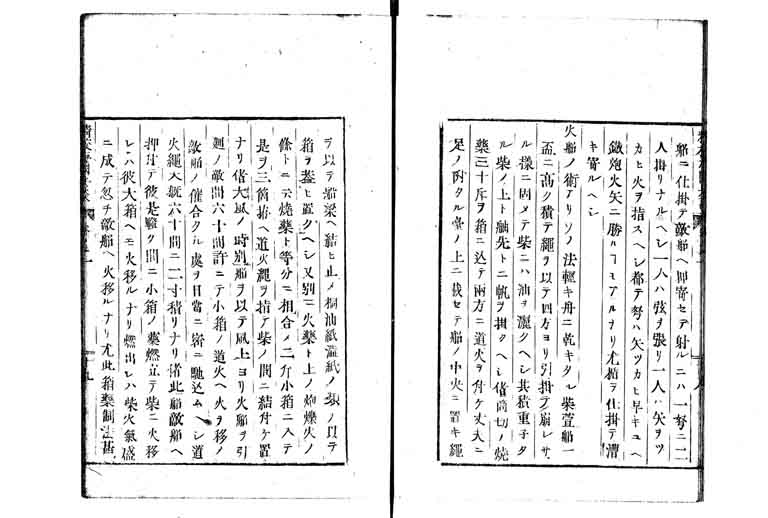 船ニ仕掛テ敵船ヘ押寄セテ射ルニハ一弩ニ二
人掛リナルヘシ一人ハ弦ヲ張リ一人ハ矢ヲツ
カヒ火ヲ指スヘシ都テ弩ハ矢ツカヒ早キユヘ
鐵炮火矢ニ勝ルヿモアルナリ尤楯ヲ仕掛テ漕
キ寄ルヘシ
火船ノ術アリソノ法輕キ舟ニ乾キタル柴萱船一
盃ニ高ク積テ繩ヲ以テ四方ヨリ引掛テ崩レサ
ル樣ニ固メテ柴ニハ油ヲ灑クヘシ其積重子タ
ル柴ノ上ト舳先トニ帆ヲ掛クヘシ偖筒切ノ燒
藥三十斥ヲ箱ニ込テ兩方ニ道火ヲ付ケ丈夫ニ
足ノ附タル臺ノ上ニ載セテ船ノ中央ニ置キ繩
ヲ以テ船梁ヘ結ヒ止メ桐油紙澁紙ノ類ノ以テ
箱ヲ葢ヒ置クヘシ又別ニ火藥ト上ノ炮爍火ノ
條トニ云燒藥ト等分ニ相合ノ二斤小箱ニ入テ
是ヲ三箇拵ヘ道火繩ヲ指テ柴ノ間ニ結付ケ置
ナリ偖大風ノ時別船ヲ以テ風上ヨリ火船ヲ引
廻ノ敵間六十間許ニテ小箱ノ道火ヘ火ヲ移ノ
敵船ノ催合タル處ヲ目當ニ密ニ馳込ムヘシ道
火繩大概六十間ニ二寸積リナリ偖此船敵船ヘ
押付テ彼是騷ク間ニ小箱ノ藥燃立テ柴ニ火移
レハ彼大箱ヘモ火移ルナリ燃出レハ柴火氣盛
ニ成テ忽チ敵船ヘ火移ルナリ尤此箱藥制法甚